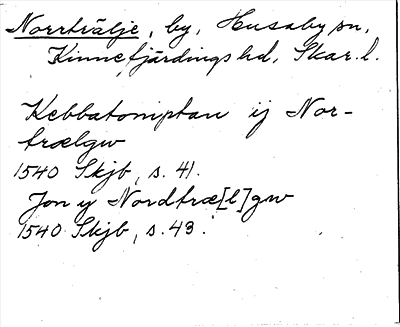 Norrträlje, by, Husaby sn,
Kinnefjärdings hd, Skar. l.
Kebbatomptan ij Nor-
trælgw
1540 Skjb, s. 41.
Jon y Nordtræ[l]gw
1540 Skjb, s. 43.